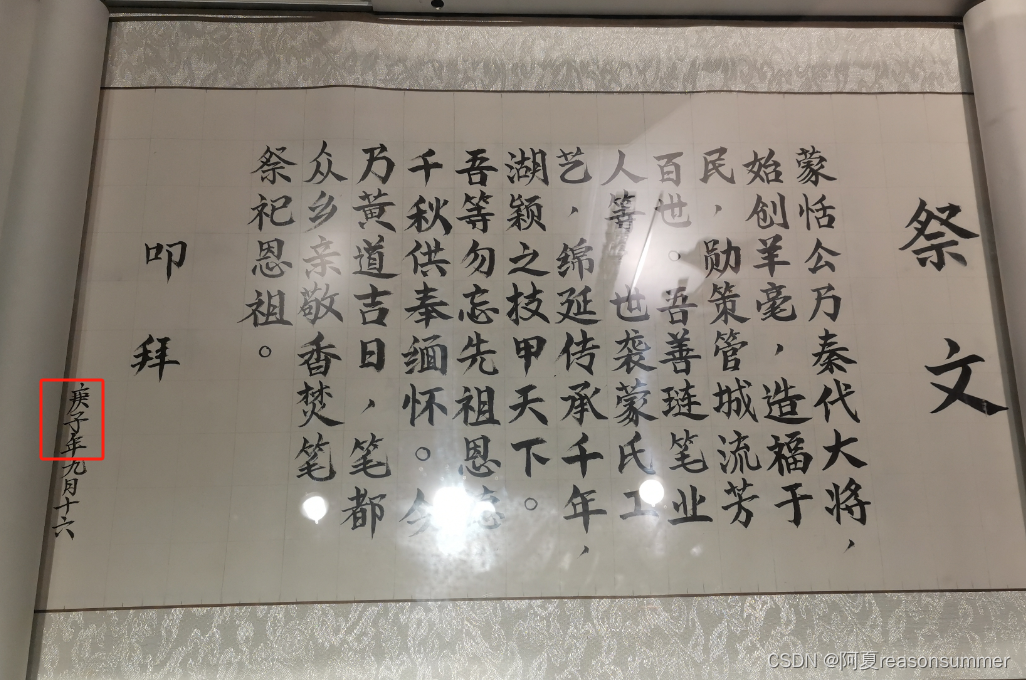 祭文
蒙恬公乃秦代大将，
始创羊毫，造福于
民，勋策管城流芳
百世。吾善琏笔业
人等世袭蒙氏工
艺，绵延传承千年，
湖颖之技甲天下。
吾等勿忘先祖恩德
千秋供奉缅怀。今
乃黄道吉日，笔都
众乡亲敬香焚笔
祭祀恩祖。
叩拜
庚子年九月十六
CSDN @阿夏reasonsummer